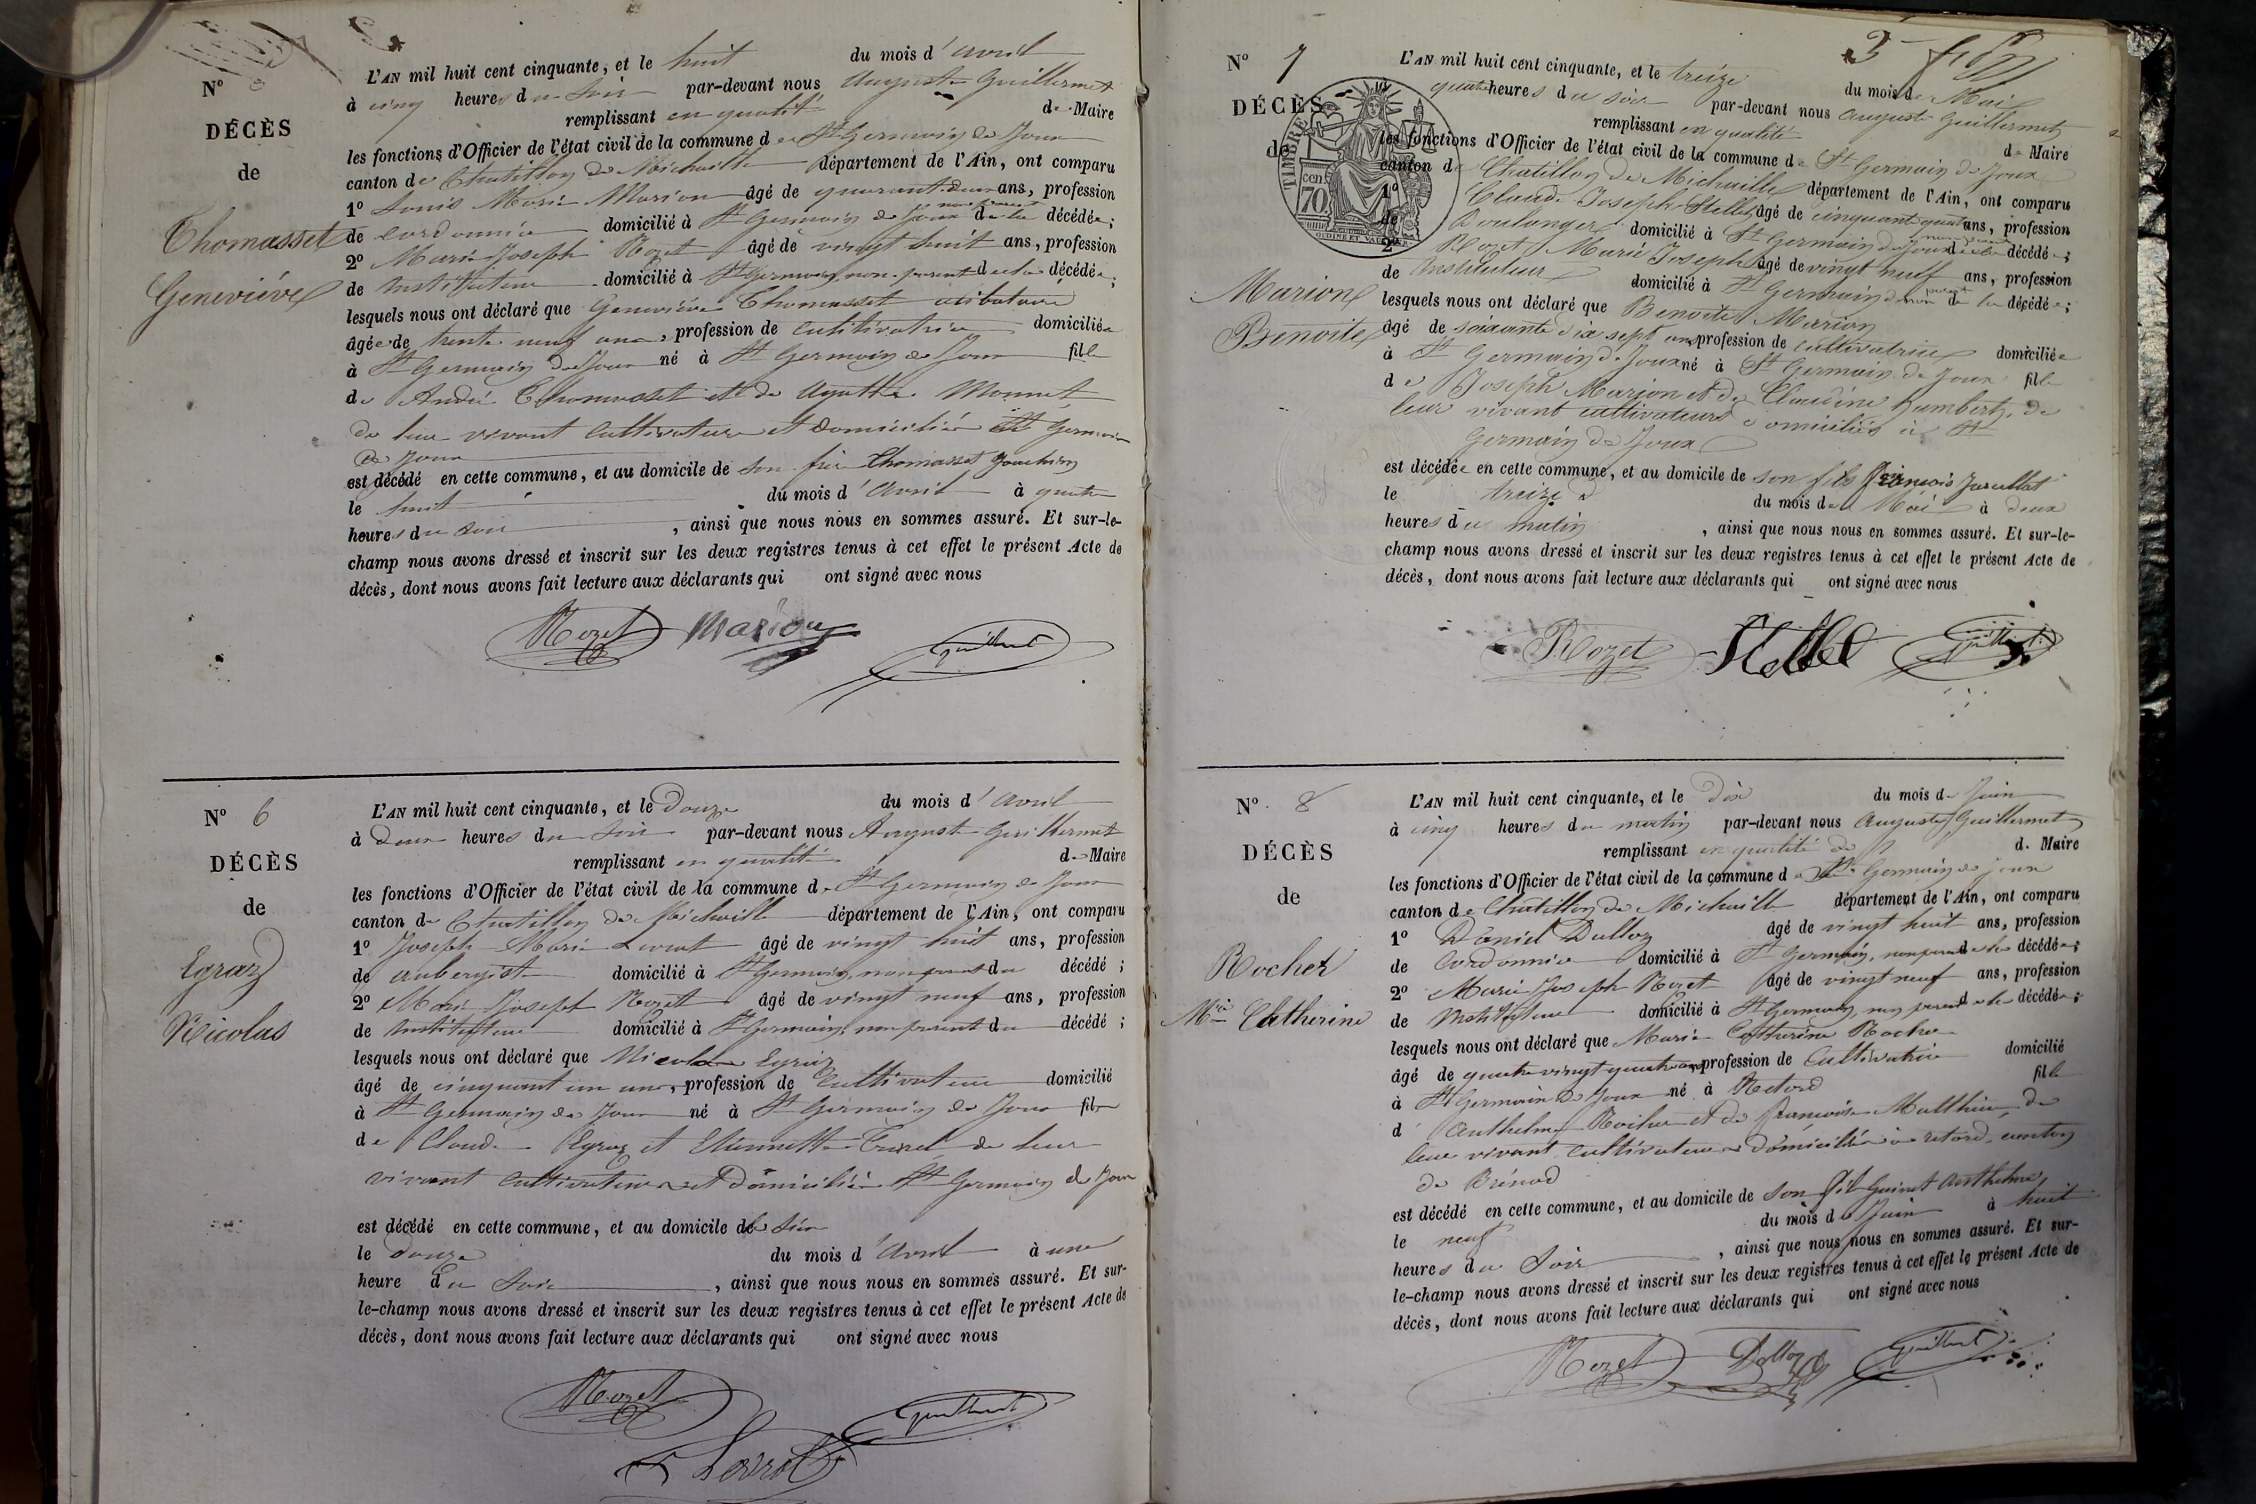 N° 5
DÉCÈS
de
Thomasset
Geneviève
L'AN mil huit cent cinquante, et le huit du mois d'avril
à cinq heures du soir par-devant nous Auguste Guillermet
remplissant en qualité de Maire
les fonctions d'Officier de l'état civil de la commune de St Germain de Joux
canton de Chatillon de Michaille département de l'Ain, ont comparu
1° Louis Marie Marion âgé de quarante deux ans, profession
de cordonnier domicilié à St Germain de Joux non parent de la décédée;
2° Marie Joseph Rozet âgé de vingt huit ans, profession
de instituteur domicilié à St Germain, non parent de la décédée;
lesquels nous ont déclaré que Geneviève Thomasset
âgée de trente neuf ans, profession de cultivatrice domiciliée
à St Germain de Joux né à St Germain de Joux fille
de André Thomasset et de Agathe Monnet
de leur vivant cultivateurs et domiciliés St Germain
de Joux
est décédé en cette commune, et au domicile de son frère Thomasset Joachim
le huit du mois d'avril à quatre
heures du soir, ainsi que nous nous en sommes assuré. Et sur-le-
champ nous avons dressé et inscrit sur les deux registres tenus à cet effet le présent Acte de
décès, dont nous avons fait lecture aux déclarants qui ont signé avec nous
Rozet Marion Guillermet
N° 6
DÉCÈS
de
Egraz
Nicolas
L'AN mil huit cent cinquante, et le Douze du mois d'avril
à deux heures du soir par-devant nous Auguste Guillermet
remplissant en qualité de Maire
les fonctions d'Officier de l'état civil de la commune de St Germain de Joux
canton de Chatillon de Michaille département de l'Ain, ont comparu
1° Joseph Marie Levrat âgé de vingt huit ans, profession
de aubergiste domicilié à St Germain, non parent du décédé;
2° Marie Joseph Rozet âgé de vingt neuf ans, profession
de instituteur domicilié à St Germain, non parent du décédé;
lesquels nous ont déclaré que Nicolas Egraz
âgé de cinquante un ans, profession de cultivateur domicilié
à St Germain de Joux né à St Germain de Joux fils
de Claude Egraz et Etiennette Turel de leur
vivant cultivateurs et domiciliés St Germain de Joux
est décédé en cette commune, et au domicile de le sien
le douze du mois d'avril à une
heure du soir, ainsi que nous nous en sommes assuré. Et sur-
le-champ nous avons dressé et inscrit sur les deux registres tenus à cet effet le présent Acte de
décès, dont nous avons fait lecture aux déclarants qui ont signé avec nous
Rozet Guillermet
Levrat
3
N° 7
DÉCÈS
de
TIMBRE
70 cen.
Marion
Benoite
L'AN mil huit cent cinquante, et le treize du mois de Mai
quatre heures du soir par-devant nous Auguste Guillermet
remplissant en qualité de Maire
les fonctions d'Officier de l'état civil de la commune de St Germain de Joux
canton de Chatillon de Michaille département de l'Ain, ont comparu
1° Claude Joseph Stellet âgé de cinquante quatre ans, profession
de Boulanger domicilié à St Germain de Joux non parent de la décédée;
2° Rozet Marie Joseph âgé de vingt neuf ans, profession
de Instituteur domicilié à St Germain non parent de la décédée;
lesquels nous ont déclaré que Benoite Marion
âgé de soixante dix sept ans profession de cultivatrice domiciliée
à St Germain de Joux né à St Germain de Joux fille
de Joseph Marion et de Claudine humbert, de
leur vivant cultivateurs domiciliés à St
Germain de Joux
est décédée en cette commune, et au domicile de son fils François Jacullat
le treize du mois de Mai à deux
heures du matin, ainsi que nous nous en sommes assuré. Et sur-le-
champ nous avons dressé et inscrit sur les deux registres tenus à cet effet le présent Acte de
décès, dont nous avons fait lecture aux déclarants qui ont signé avec nous
Rozet Stellet Guillermet
N° 8
DÉCÈS
de
Rocher
Mrie Catherine
L'AN mil huit cent cinquante, et le dix du mois de Juin
à cinq heures du matin par-devant nous Auguste Guillermet
remplissant en qualité de de Maire
les fonctions d'Officier de l'état civil de la commune de St Germain de Joux
canton de Chatillon de Michaille département de l'Ain, ont comparu
1° Daniel Dalloz âgé de vingt huit ans, profession
de Cordonnier domicilié à St Germain, non parent de la décédée;
2° Marie Joseph Rozet âgé de vingt neuf ans, profession
de Instituteur domicilié à St Germain, non parent de la décédée;
lesquels nous ont déclaré que Marie Catherine Rocher
âgé de quatre vingt quatre ans profession de Cultivatrice domicilié
à St Germain de Joux né à Retord fille
d'Anthelme Rocher et de françoise Matthieu, de
leur vivant cultivateurs domiciliés à retord, canton
de Brénod
est décédé en cette commune, et au domicile de son fils Guinet Anthelme
le neuf du mois de Juin à huit
heures du Soir, ainsi que nous nous en sommes assuré. Et sur-
le-champ nous avons dressé et inscrit sur les deux registres tenus à cet effet le présent Acte de
décès, dont nous avons fait lecture aux déclarants qui ont signé avec nous
Rozet Dalloz Guillermet